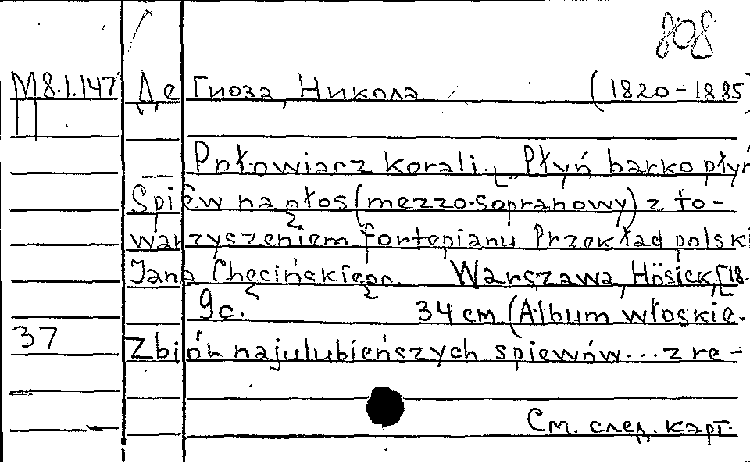 808
М 8.1.147 Де Гиоза, Никола (1820-1885
II
Połowiacz korali. „Płyń barko płyń
Spiéw na głos (mezzo-sopranowy) z to-
warzyszeniem fortepianu Przekład polski
Jana Chęcińskiego. Warszawa, Hösick, [18-
9с. 34 см (Album włoskie.
37 Zbiór najulubieńszych śpiewów... z re-
См. след. карт.